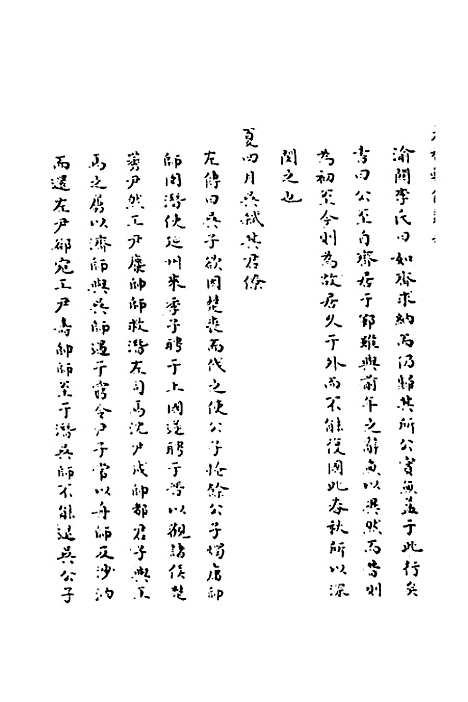 渝關李氏曰如齊求納而仍歸其所公實無益于此行矣
書曰公至自齊居于鄆雖與前年之辭無以異然而昔則
為初至今則為故居久于外而不能復國此春秋所以深
閔之也
夏四月吳弑其君僚
左傳曰吳子欲因楚喪而伐之使公子掩餘公子燭庸帥
師圍潛使延州來季子聘于上國遂聘于晉以觀諸侯楚
莠尹然工尹麇帥師救潛左司馬沈尹戌帥都君子與王
馬之屬以濟師與吳師遇于窮令尹子常以舟師及沙汭
而還左尹郤宛工尹壽帥師至于潛吳師不能退吳公子